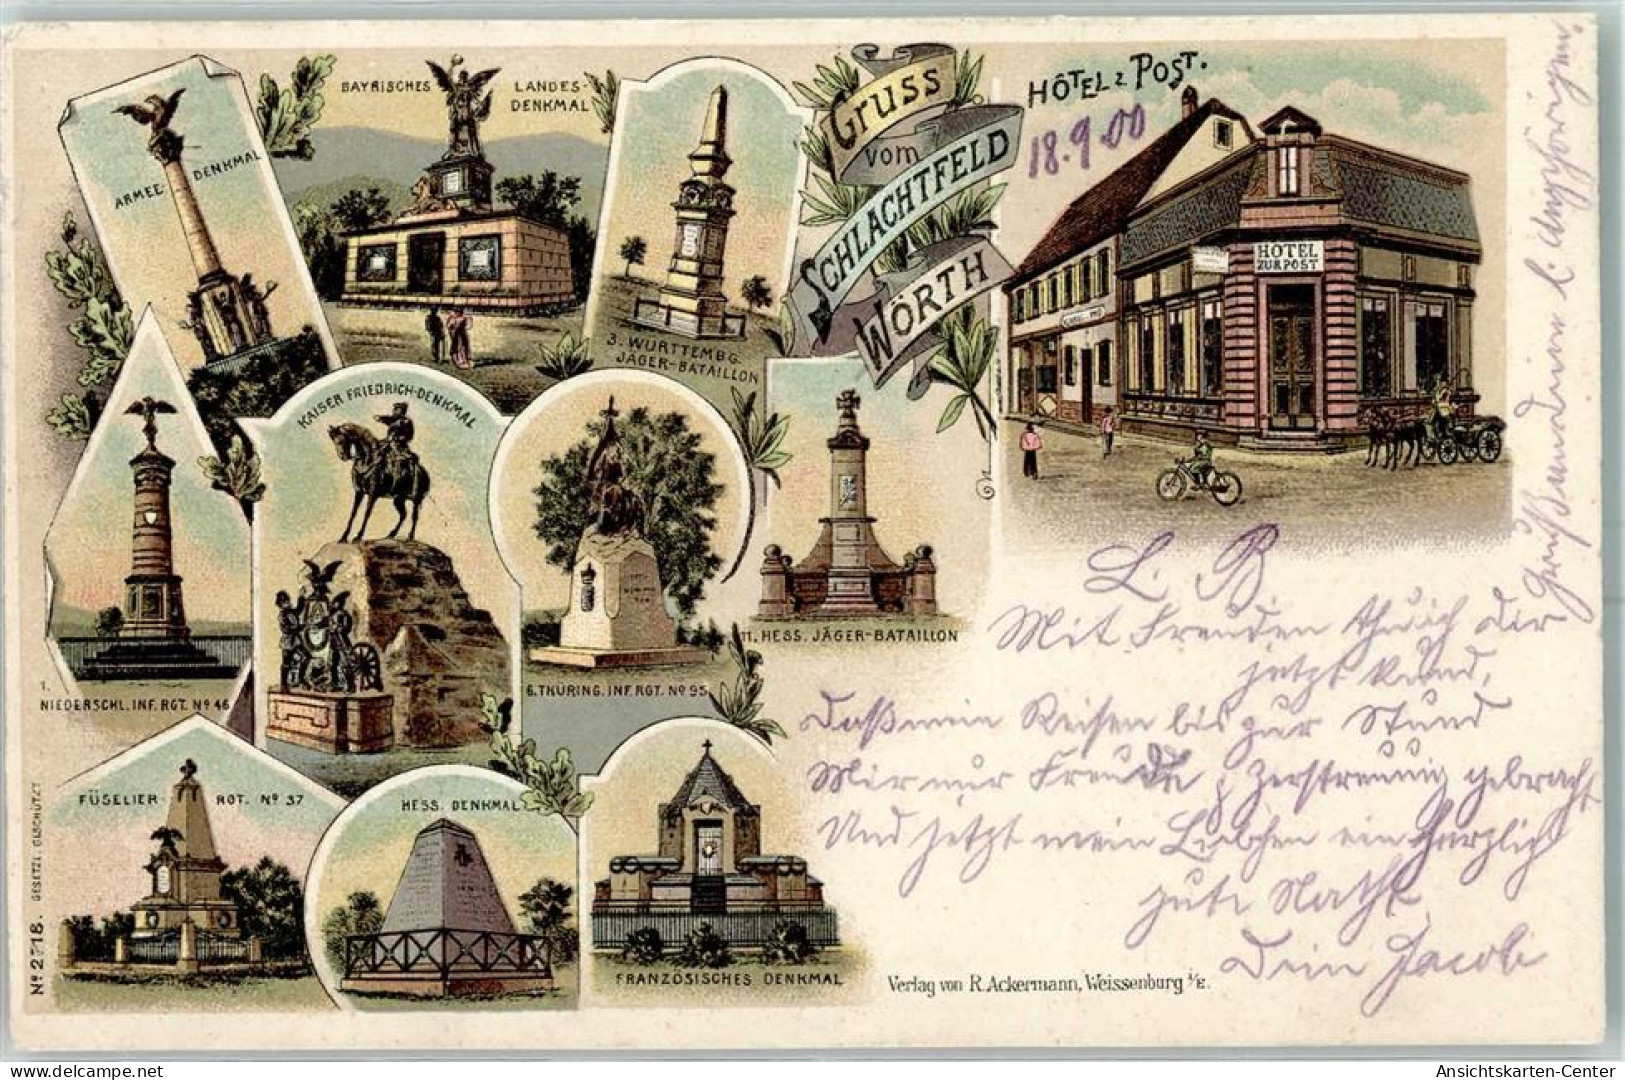 ARMEE DENKMAL
BAYRISCHES LANDES-
DENKMAL
3. WÜRTTEMBG.
JÄGER-BATAILLON
GRUSS
VOM
SCHLACHTFELD
WÖRTH
HÔTEL Z. POST.
18.9.00
HÔTEL
ZUR POST
1.
NIEDERSCHL. INF. RGT. Nº 46
KAISER FRIEDRICH-DENKMAL
6. THÜRING. INF. RGT. Nº 95
11. HESS. JÄGER-BATAILLON
FÜSELIER RGT. Nº 37
HESS. DENKMAL
FRANZÖSISCHES DENKMAL
Nº 2718. GESETZL. GESCHÜTZT
Verlag von R. Ackermann, Weissenburg i/E.
L. B
Mit Freuden thu ich dir
jetzt kund,
Daß mein Reisen bis zur Stund
Mir nur Freude & Zerstreuung gebracht
Und jetzt mein Liebchen ein herzlich
gute Nacht
Dein Jacob